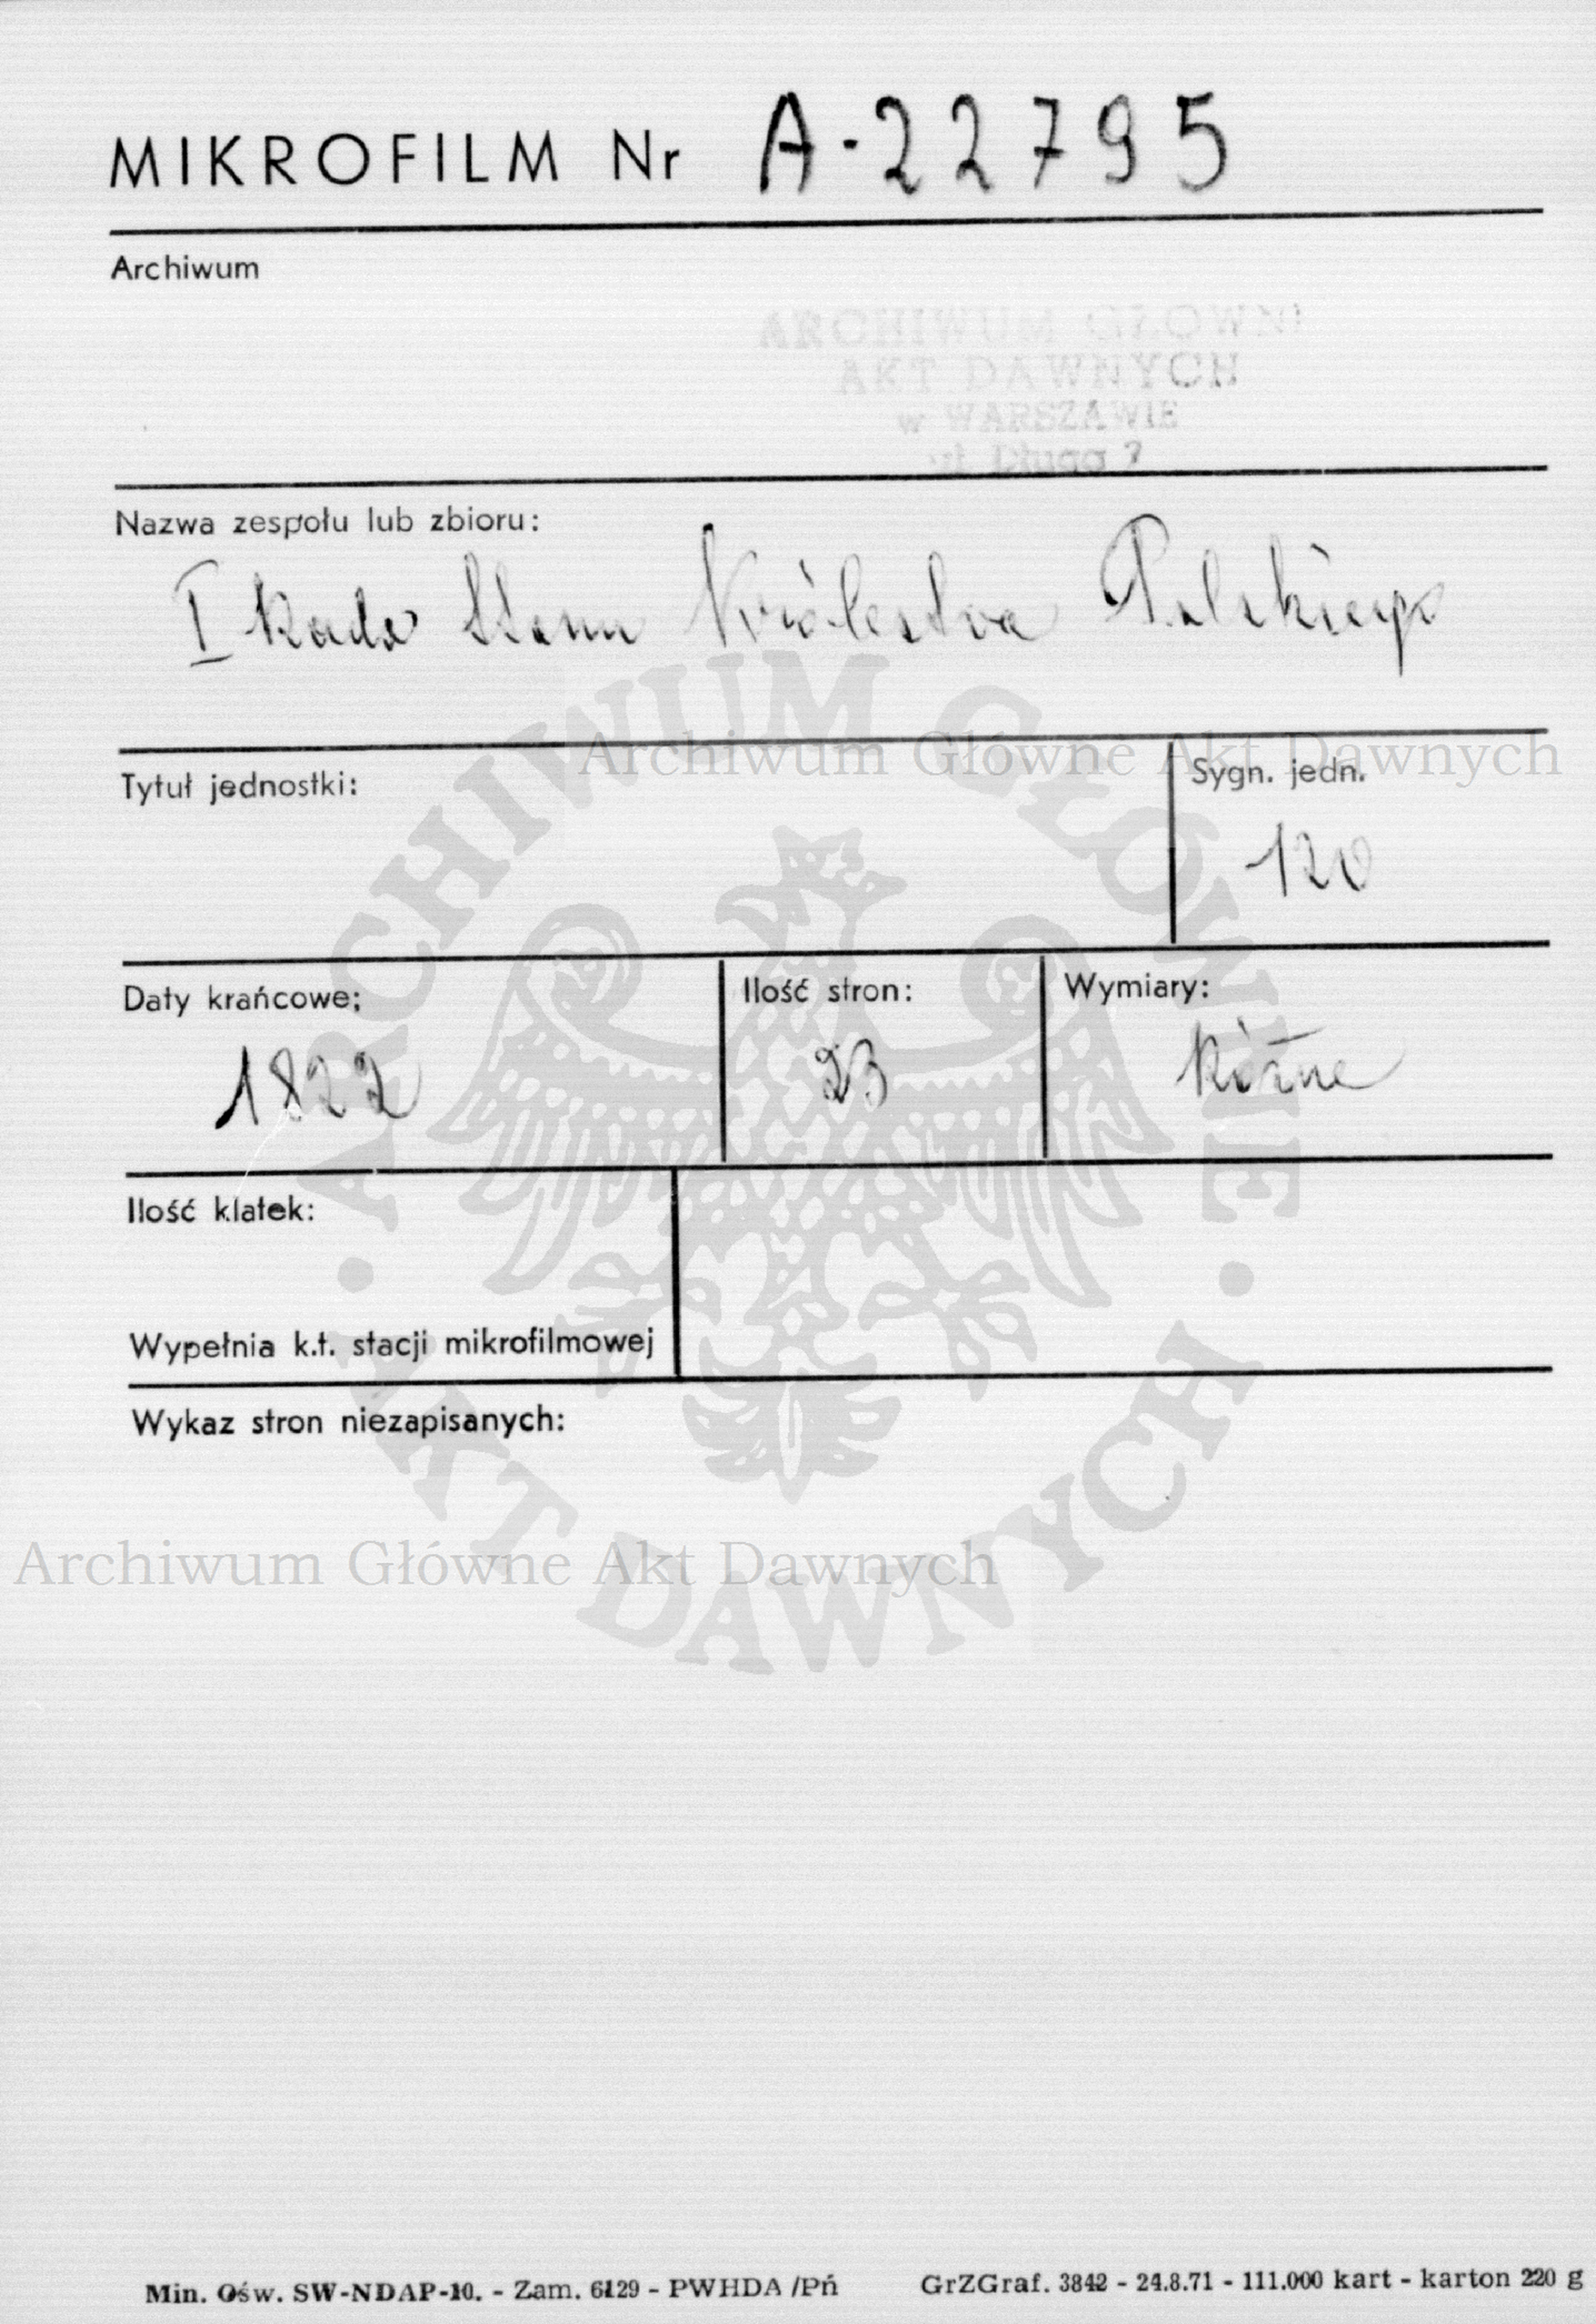 MIKROFILM Nr A-22795
Archiwum
ARCHIWUM GŁÓWNE
AKT DAWNYCH
w WARSZAWIE
ul. Długa 7
Nazwa zespołu lub zbioru:
I Rada Stanu Królestwa Polskiego
Archiwum Główne Akt Dawnych
Tytuł jednostki:
Sygn. jedn.
120
Daty krańcowe:
Ilość stron:
Wymiary:
1822
23
Różne
Ilość klatek:
Wypełnia k.t. stacji mikrofilmowej
Wykaz stron niezapisanych:
ARCHIWUM GŁÓWNE · AKT DAWNYCH ·
Archiwum Główne Akt Dawnych
Min. Ośw. SW-NDAP-10. - Zam. 6129 - PWHDA /Pń
GrZGraf. 3842 - 24.8.71 - 111.000 kart - karton 220 g